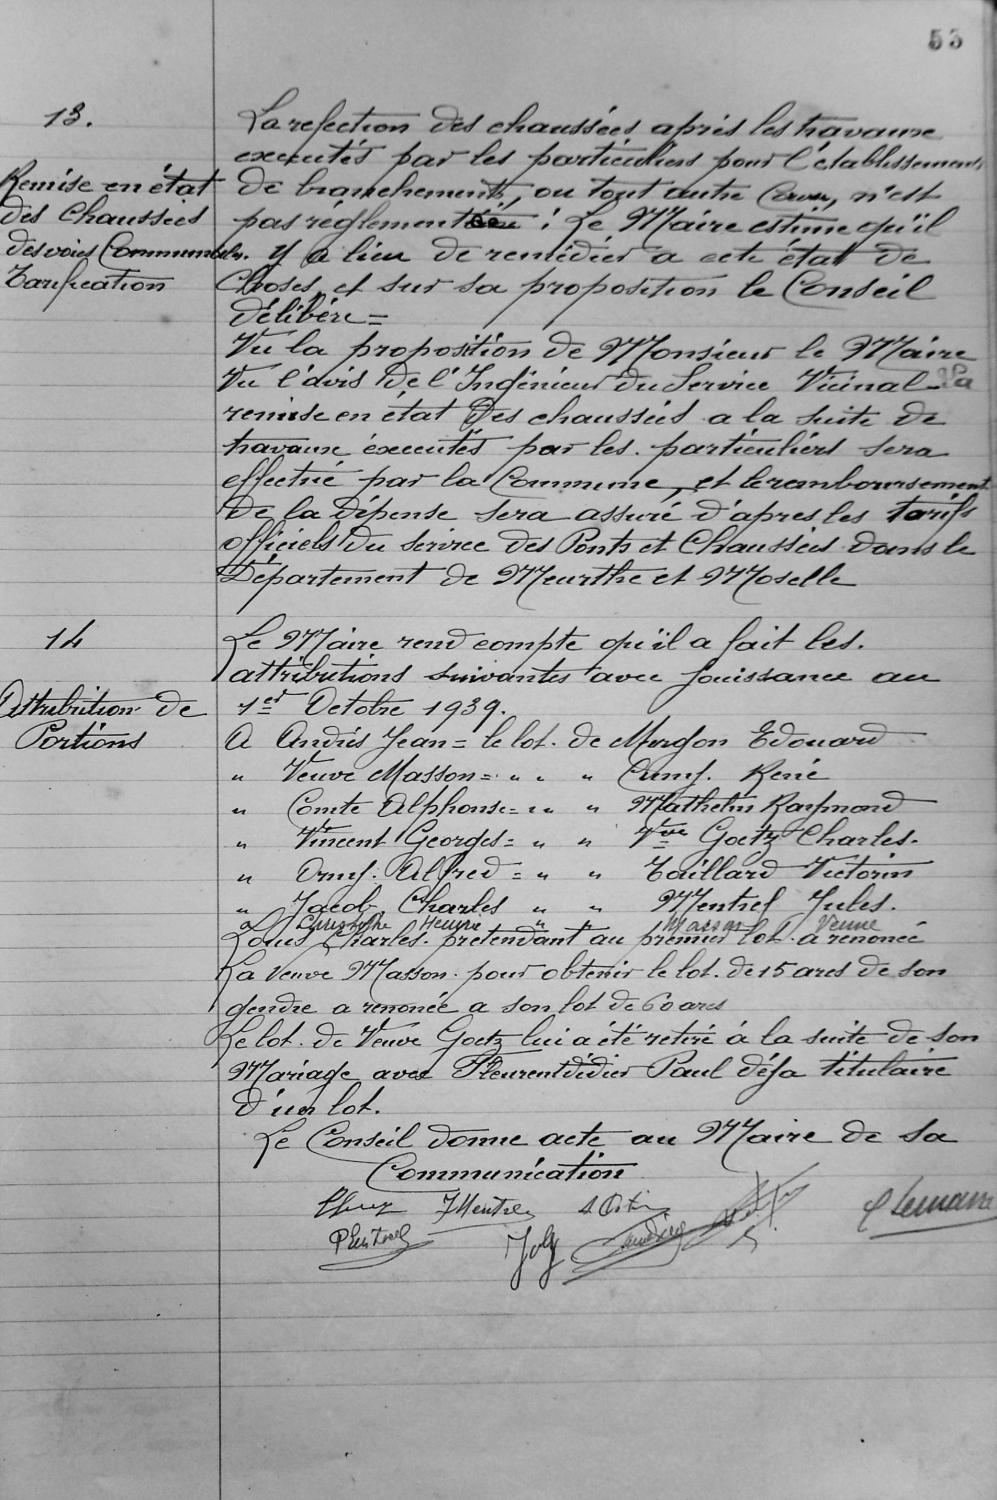 53
13.
Remise en état
des chaussées
des voies Communales.
Tarification
La refection des chaussées après les travaux
executés par les particuliers pour l'établissement
de branchements, ou tout autre Cause, n'est
pas réglementée : Le Maire estime qu'il
y a lieu de remédier a cete état de
Choses, et sur sa proposition le Conseil
délibére =
Vu la proposition de Monsieur le Maire
Vu l'avis de l'Ingénieur du Service Vicinal - La
remise en état Des chaussées a la suite de
travaux éxecutés par les particuliérs sera
effectué par la Commune, et le remboursement
de la dépense sera assuré d'apres les tarifs
officiels du service des Ponts et Chaussées dans le
Département de Meurthe et Moselle
14
Attribution de
Portions
Le Maire rend compte qu'il a fait les.
attributions suivantes avec jouissance au
1er Octobre 1939.
A Andrés Jean = le lot. de Murgon Edouard
" Veuve Masson = " " " Cuny. René
" Comte Alphonse = " " " Mathelin Raymond
" Vincent Georges = " " Vve Goetz Charles.
" Orny. Alfred = " " Taillard Victorin
" Jacob Charles " " Mentrel Jules.
" Christophe Henrie " " Masson Veuve
Louis Charles. prétendant au premier lot. a renoncé
La veuve Masson. pour obtenir le lot. de 15 ares de son
gendre a renoncé a son lot de 60 ares
Le lot. de Veuve Goetz lui a été retiré à la suite de son
Mariage avec Fleurentdidier Paul déja titulaire
d'un lot.
Le Conseil donne acte au Maire de sa
Communication
JMentrel
Joly